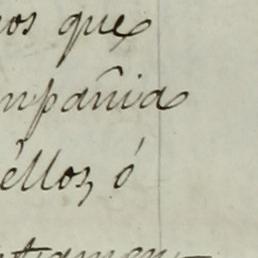 nos que
mpañia
éllos, ó